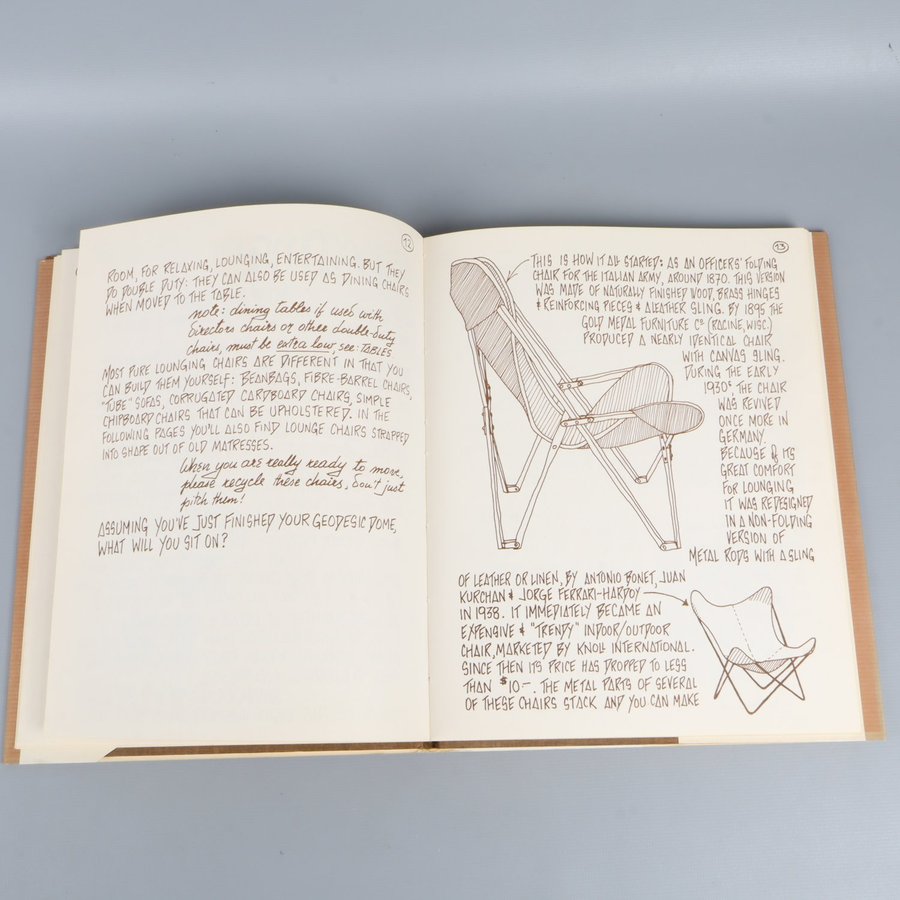 12
ROOM, FOR RELAXING, LOUNGING, ENTERTAINING. BUT THEY
DO DOUBLE DUTY: THEY CAN ALSO BE USED AS DINING CHAIRS
WHEN MOVED TO THE TABLE.
note: dining tables if used with
directors chairs or other double-duty
chairs, must be extra low, see: TABLES.
MOST PURE LOUNGING CHAIRS ARE DIFFERENT IN THAT YOU
CAN BUILD THEM YOURSELF: BEANBAGS, FIBRE-BARREL CHAIRS,
"TUBE" SOFAS, CORRUGATED CARDBOARD CHAIRS, SIMPLE
CHIPBOARD CHAIRS THAT CAN BE UPHOLSTERED. IN THE
FOLLOWING PAGES YOU'LL ALSO FIND LOUNGE CHAIRS STRAPPED
INTO SHAPE OUT OF OLD MATRESSES.
When you are really ready to move,
please recycle these chairs, don't just
pitch them!
ASSUMING YOU'VE JUST FINISHED YOUR GEODESIC DOME,
WHAT WILL YOU SIT ON?
13
THIS IS HOW IT ALL STARTED: AS AN OFFICERS' FOLDING
CHAIR FOR THE ITALIAN ARMY, AROUND 1870. THIS VERSION
WAS MADE OF NATURALLY FINISHED WOOD, BRASS HINGES
& REINFORCING PIECES & A LEATHER SLING. BY 1895 THE
GOLD MEDAL FURNITURE Cº (RACINE, WISC.)
PRODUCED A NEARLY IDENTICAL CHAIR
WITH CANVAS SLING.
DURING THE EARLY
1930s, THE CHAIR
WAS REVIVED
ONCE MORE IN
GERMANY.
BECAUSE of ITS
GREAT COMFORT
FOR LOUNGING
IT WAS REDESIGNED
IN A NON-FOLDING
VERSION OF
METAL RODS WITH A SLING
OF LEATHER OR LINEN, BY ANTONIO BONET, JUAN
KURCHAN & JORGE FERRARI-HARDOY
IN 1938. IT IMMEDIATELY BECAME AN
EXPENSIVE & "TRENDY" INDOOR/OUTDOOR
CHAIR, MARKETED BY KNOLL INTERNATIONAL.
SINCE THEN ITS PRICE HAS DROPPED TO LESS
THAN $10-. THE METAL PARTS OF SEVERAL
OF THESE CHAIRS STACK AND YOU CAN MAKE